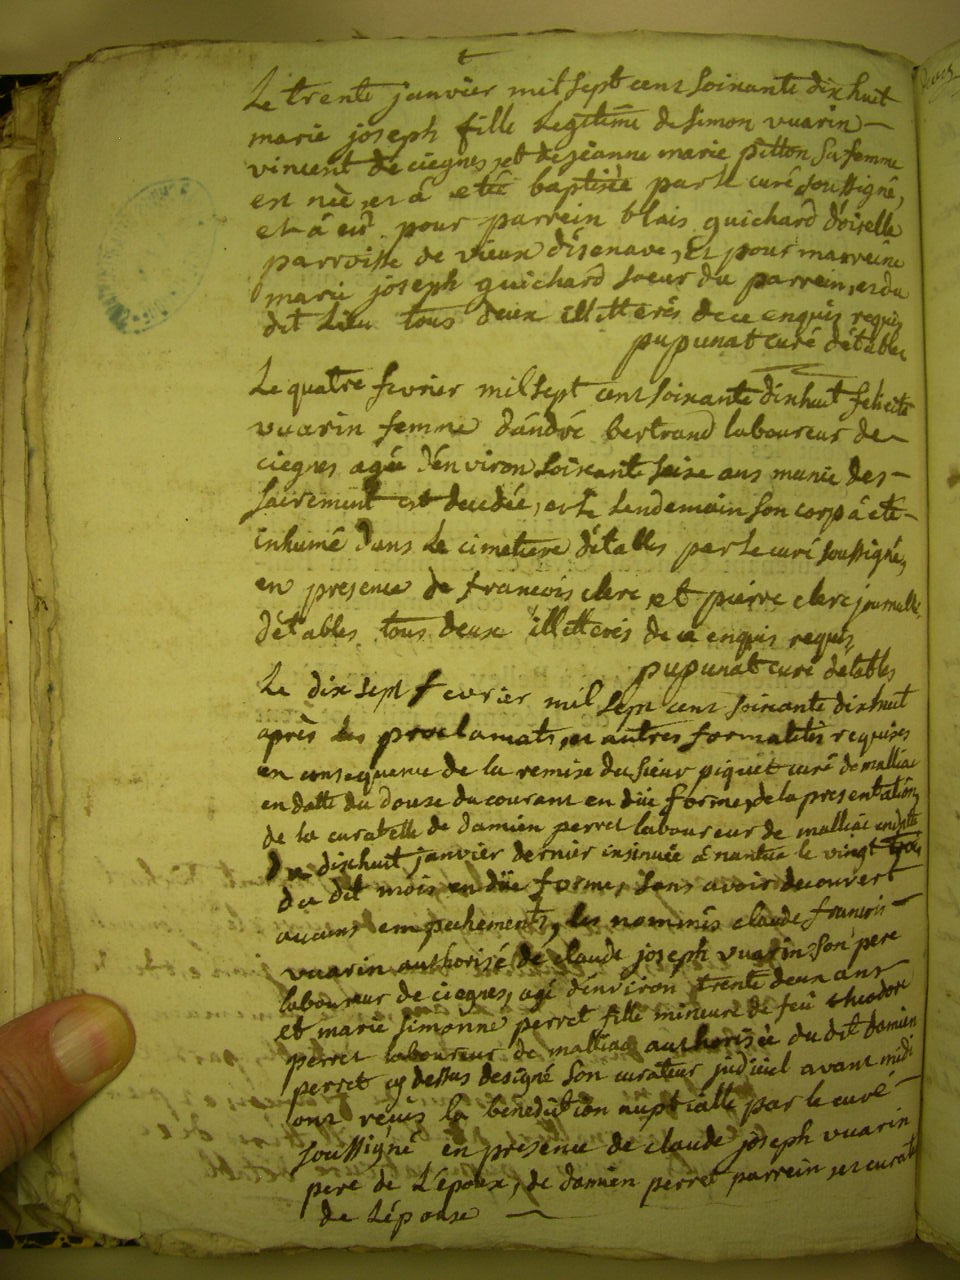 Le trente janvier mil sept cent soixante dix huit
marie joseph fille Legitime de simon vuarin
vincent de ciegnes, et de jeanne marie pitton sa femme
est nèe, et â etée baptisée par le curé soussigné,
et â eû pour parrein blais guichard d'oiselle
parroisse de vieux d'isenave, Et pour marreine
marie joseph guichard soeur du parrein, et du
dit Lieu tous deux illitterés de ce enquis requis
pupunat curé détables
Le quatre fevrier mil sept cent soixante dixhuit felicité
vuarin femme d'andré bertrand laboureur de
ciegnes agée d'environ soixante seise ans munie des
sacrement est decedée, et le lendemain son corp â eté
inhumé dans le cimetiere détables par le curé soussigné,
en presence de francois clerc et pierre clerc journalle
détables tous deux illitterés de ce enquis requis
pupunat curé détables
Le dix sept fevrier mil sept cent soixante dixhuit
après les proclamats, et autres formalités requises
en consequence de la remise du sieur piquet curé de malliac
en datte du douse du courant en düe forme, de la presentation
de la curatelle de damien perret laboureur de malliac en datte
du dixhuit janvier dernier insinuée â nantua le vingt trois
du dit mois en düe forme, sans avoir decouvert
aucuns empechements, les nommés claude francois
vuarin authorisé de claude joseph vuarin son pere
laboureur de ciegnes, agé d'environ trente deux ans
et marie simonne perret fille mineure de feû theodore
perret laboureur de malliac authorisée du dit damien
perret cy dessus designé son curateur judiciel avant midi
ont reçus la benediction nuptialle par le curé
soussigné en presence de claude joseph vuarin
pere de L'époux, de damien perret parrein et curat
de Lépouse